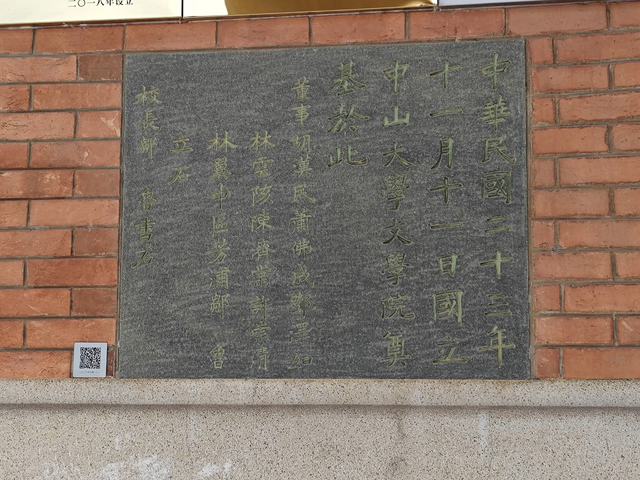 二〇一八年
中華民國二十三年
十一月十一日國立
中山大學文學院奠
基於此
董事胡漢民蕭佛成鄧澤如
林雲陔陳濟棠許崇清
林翼中區芳浦鄒 魯
立石
校長鄒 魯書石